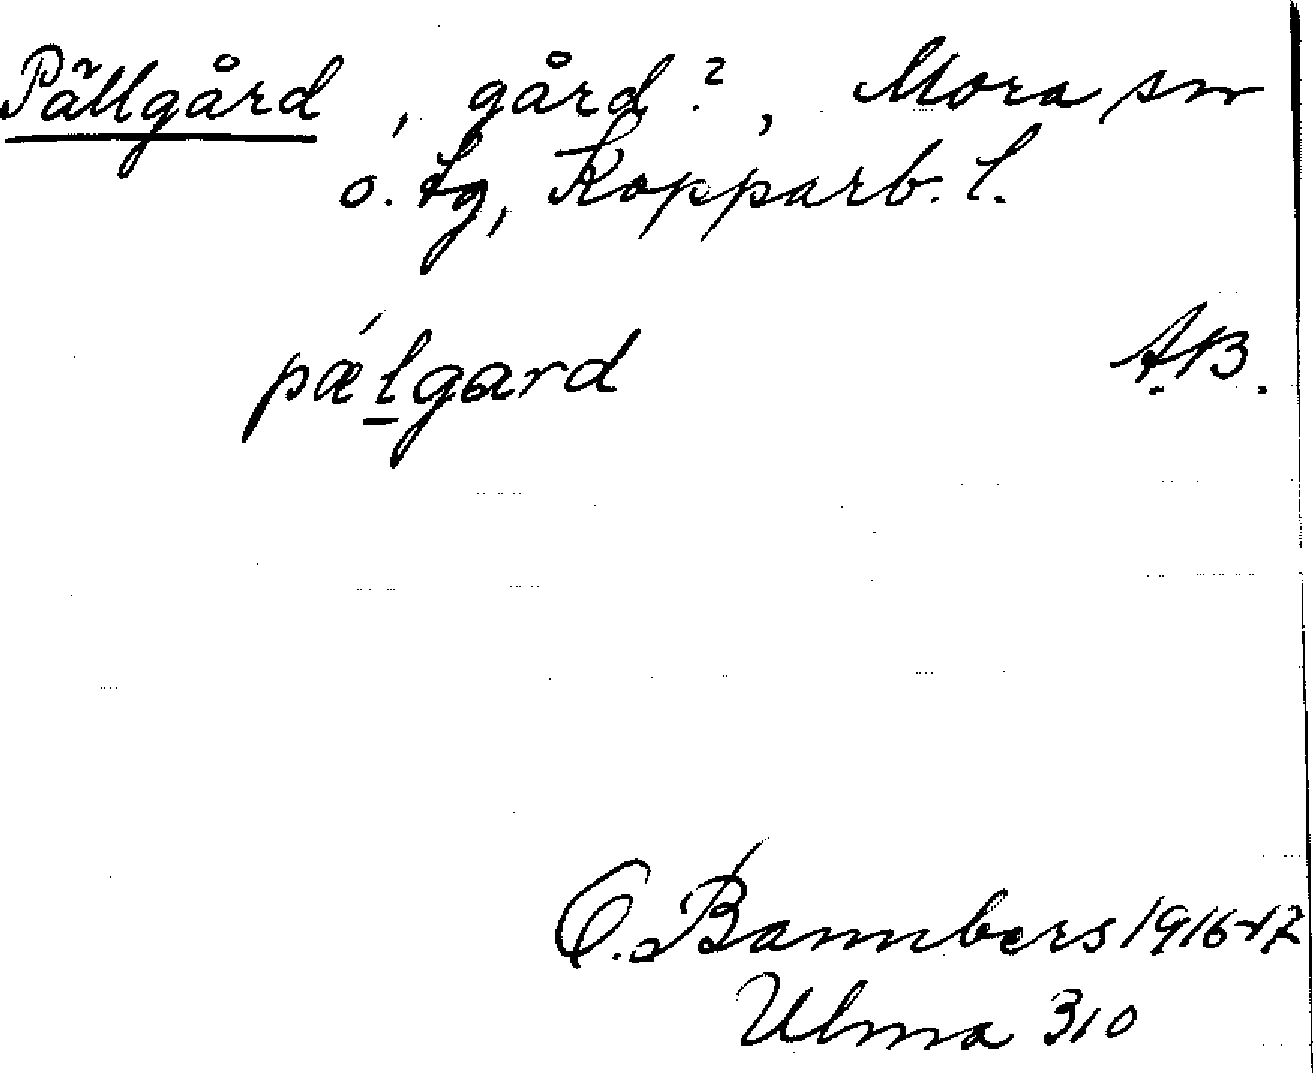 Pällgård, gård?, Mora sn
o. tg, Kopparb. l.
pæ´lgard A.B.
O. Bannbers 1916-17
Ulma 310